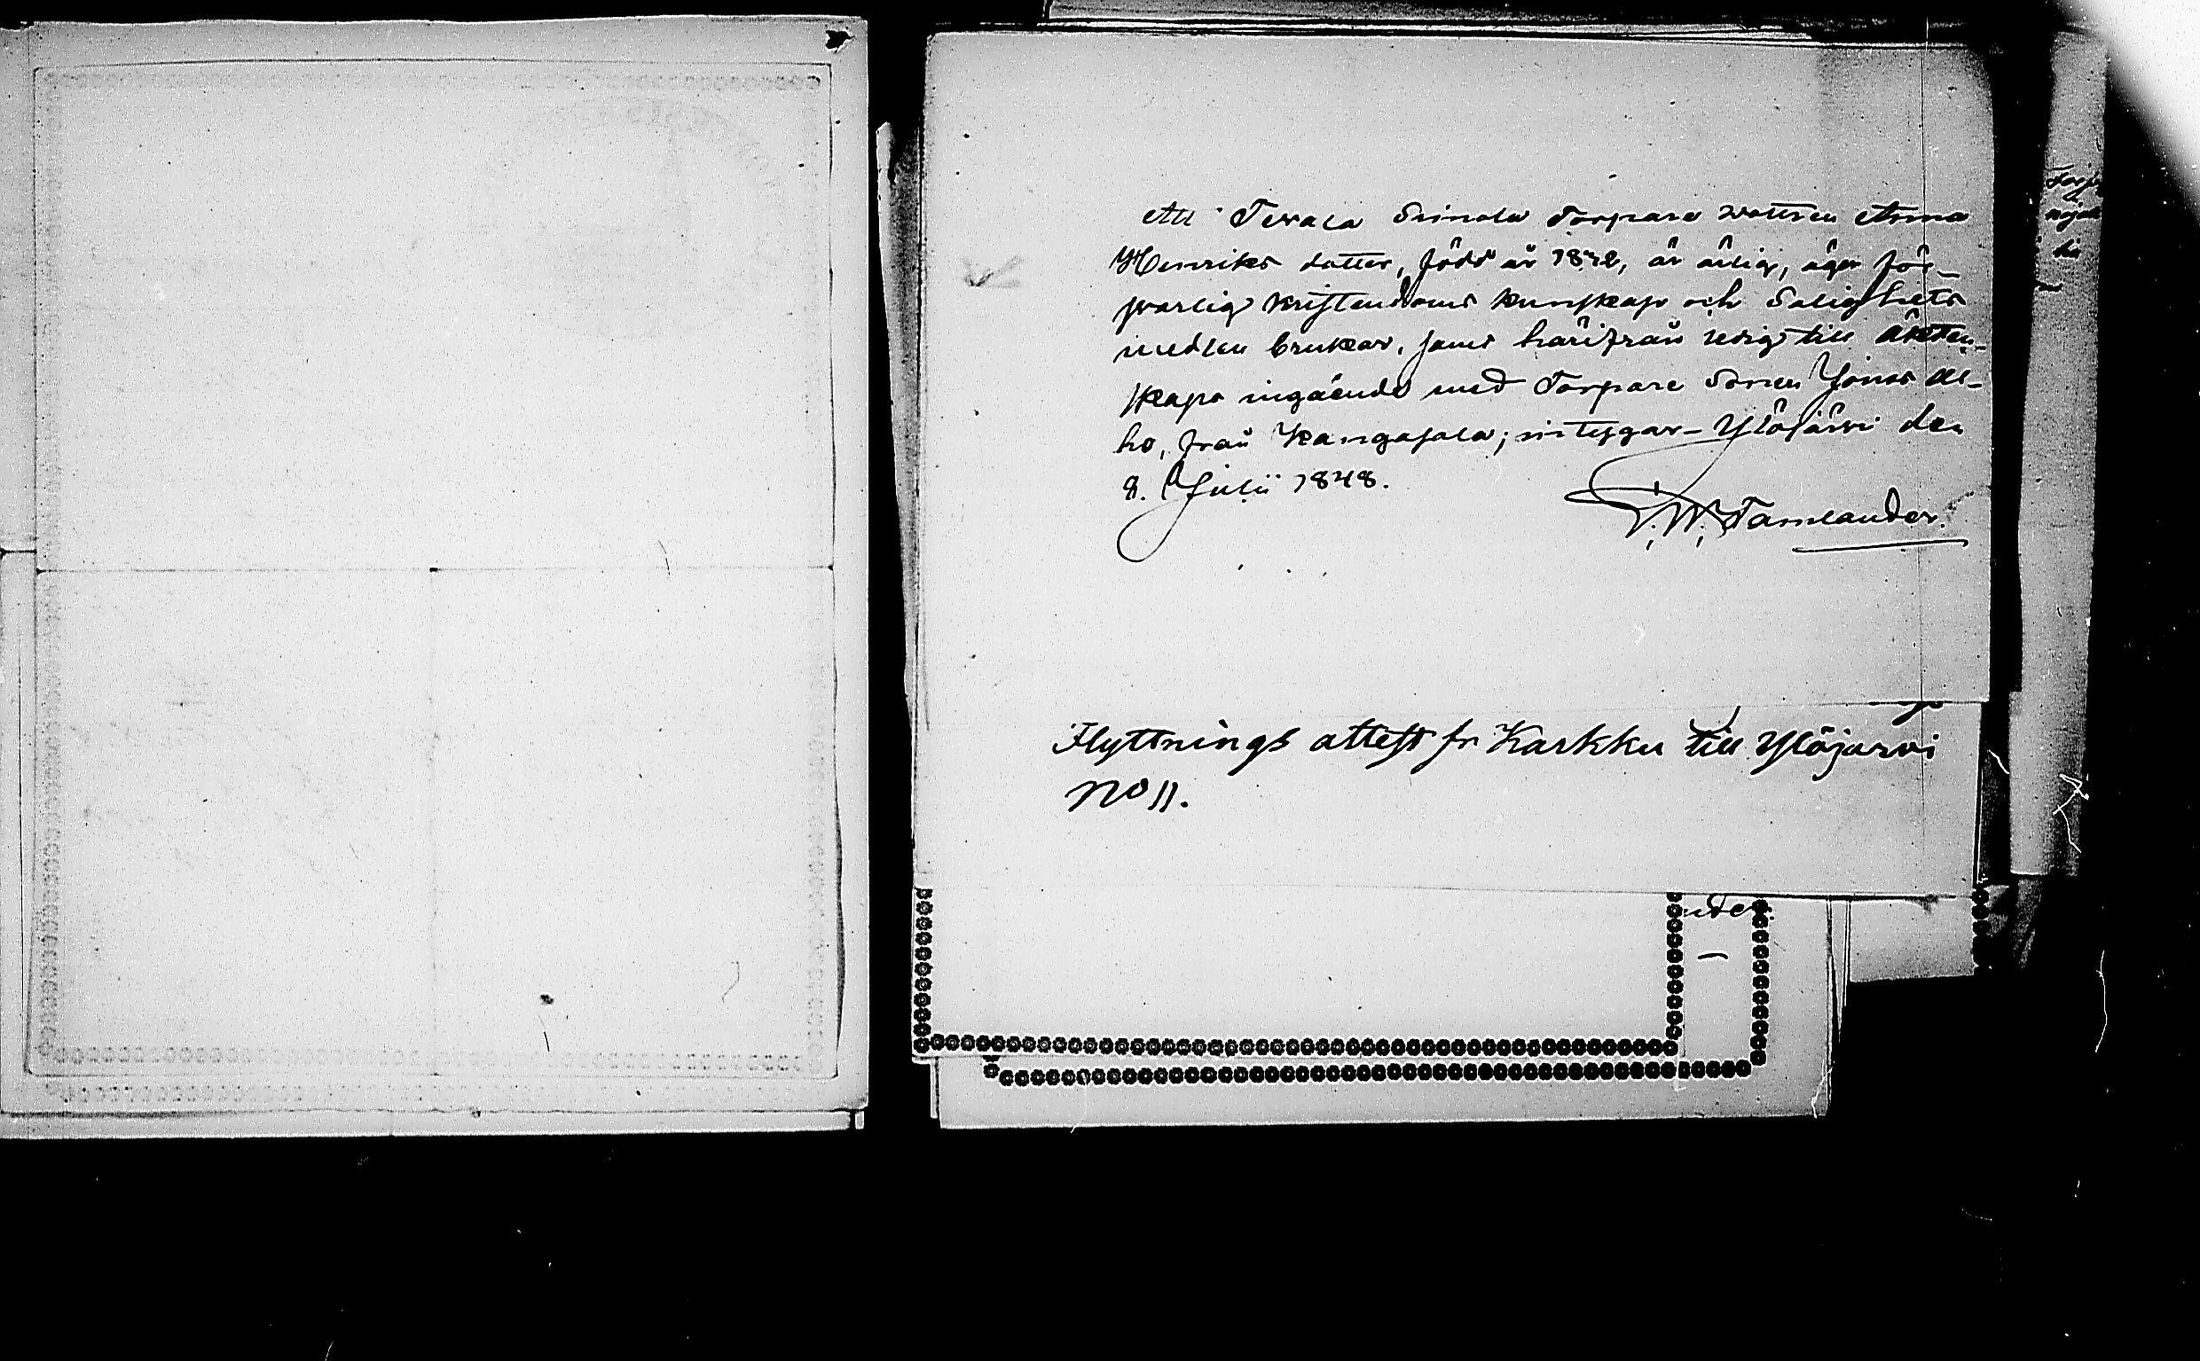 Att Terala Simola Torpare dottren Anna
Henriks dotter, född år 1822, är ärlig, äger för-
svarlig kristendoms kunskap och Salighets
medlen brukar, samt härifrån ledig till äkten-
skaps ingående med Torpare Sonen Jonas Al-
ho, från Kangasala; intygar - Ylöjärvi den
8. Julii 1848.
G. W. Tamlander.
Flyttnings attest fr Karkku till Ylöjärvi
No 11.